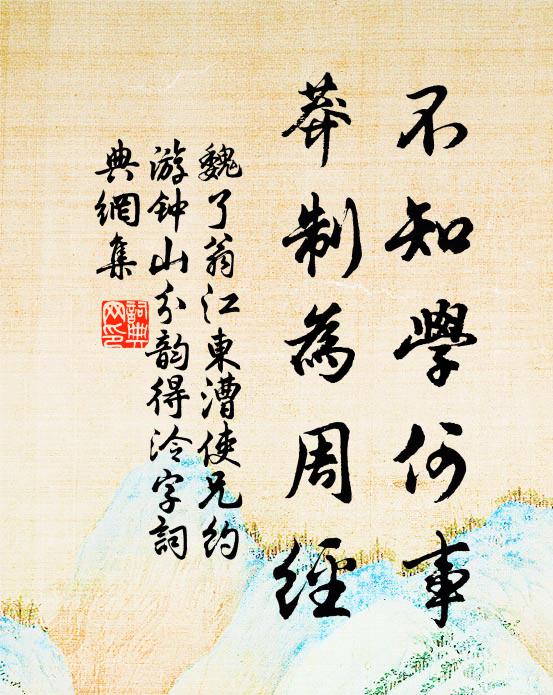 不知學何事
莽制為周經
魏了翁江東漕使兄約
游钟山分韵得泠字詞
典網集
詞典
网印